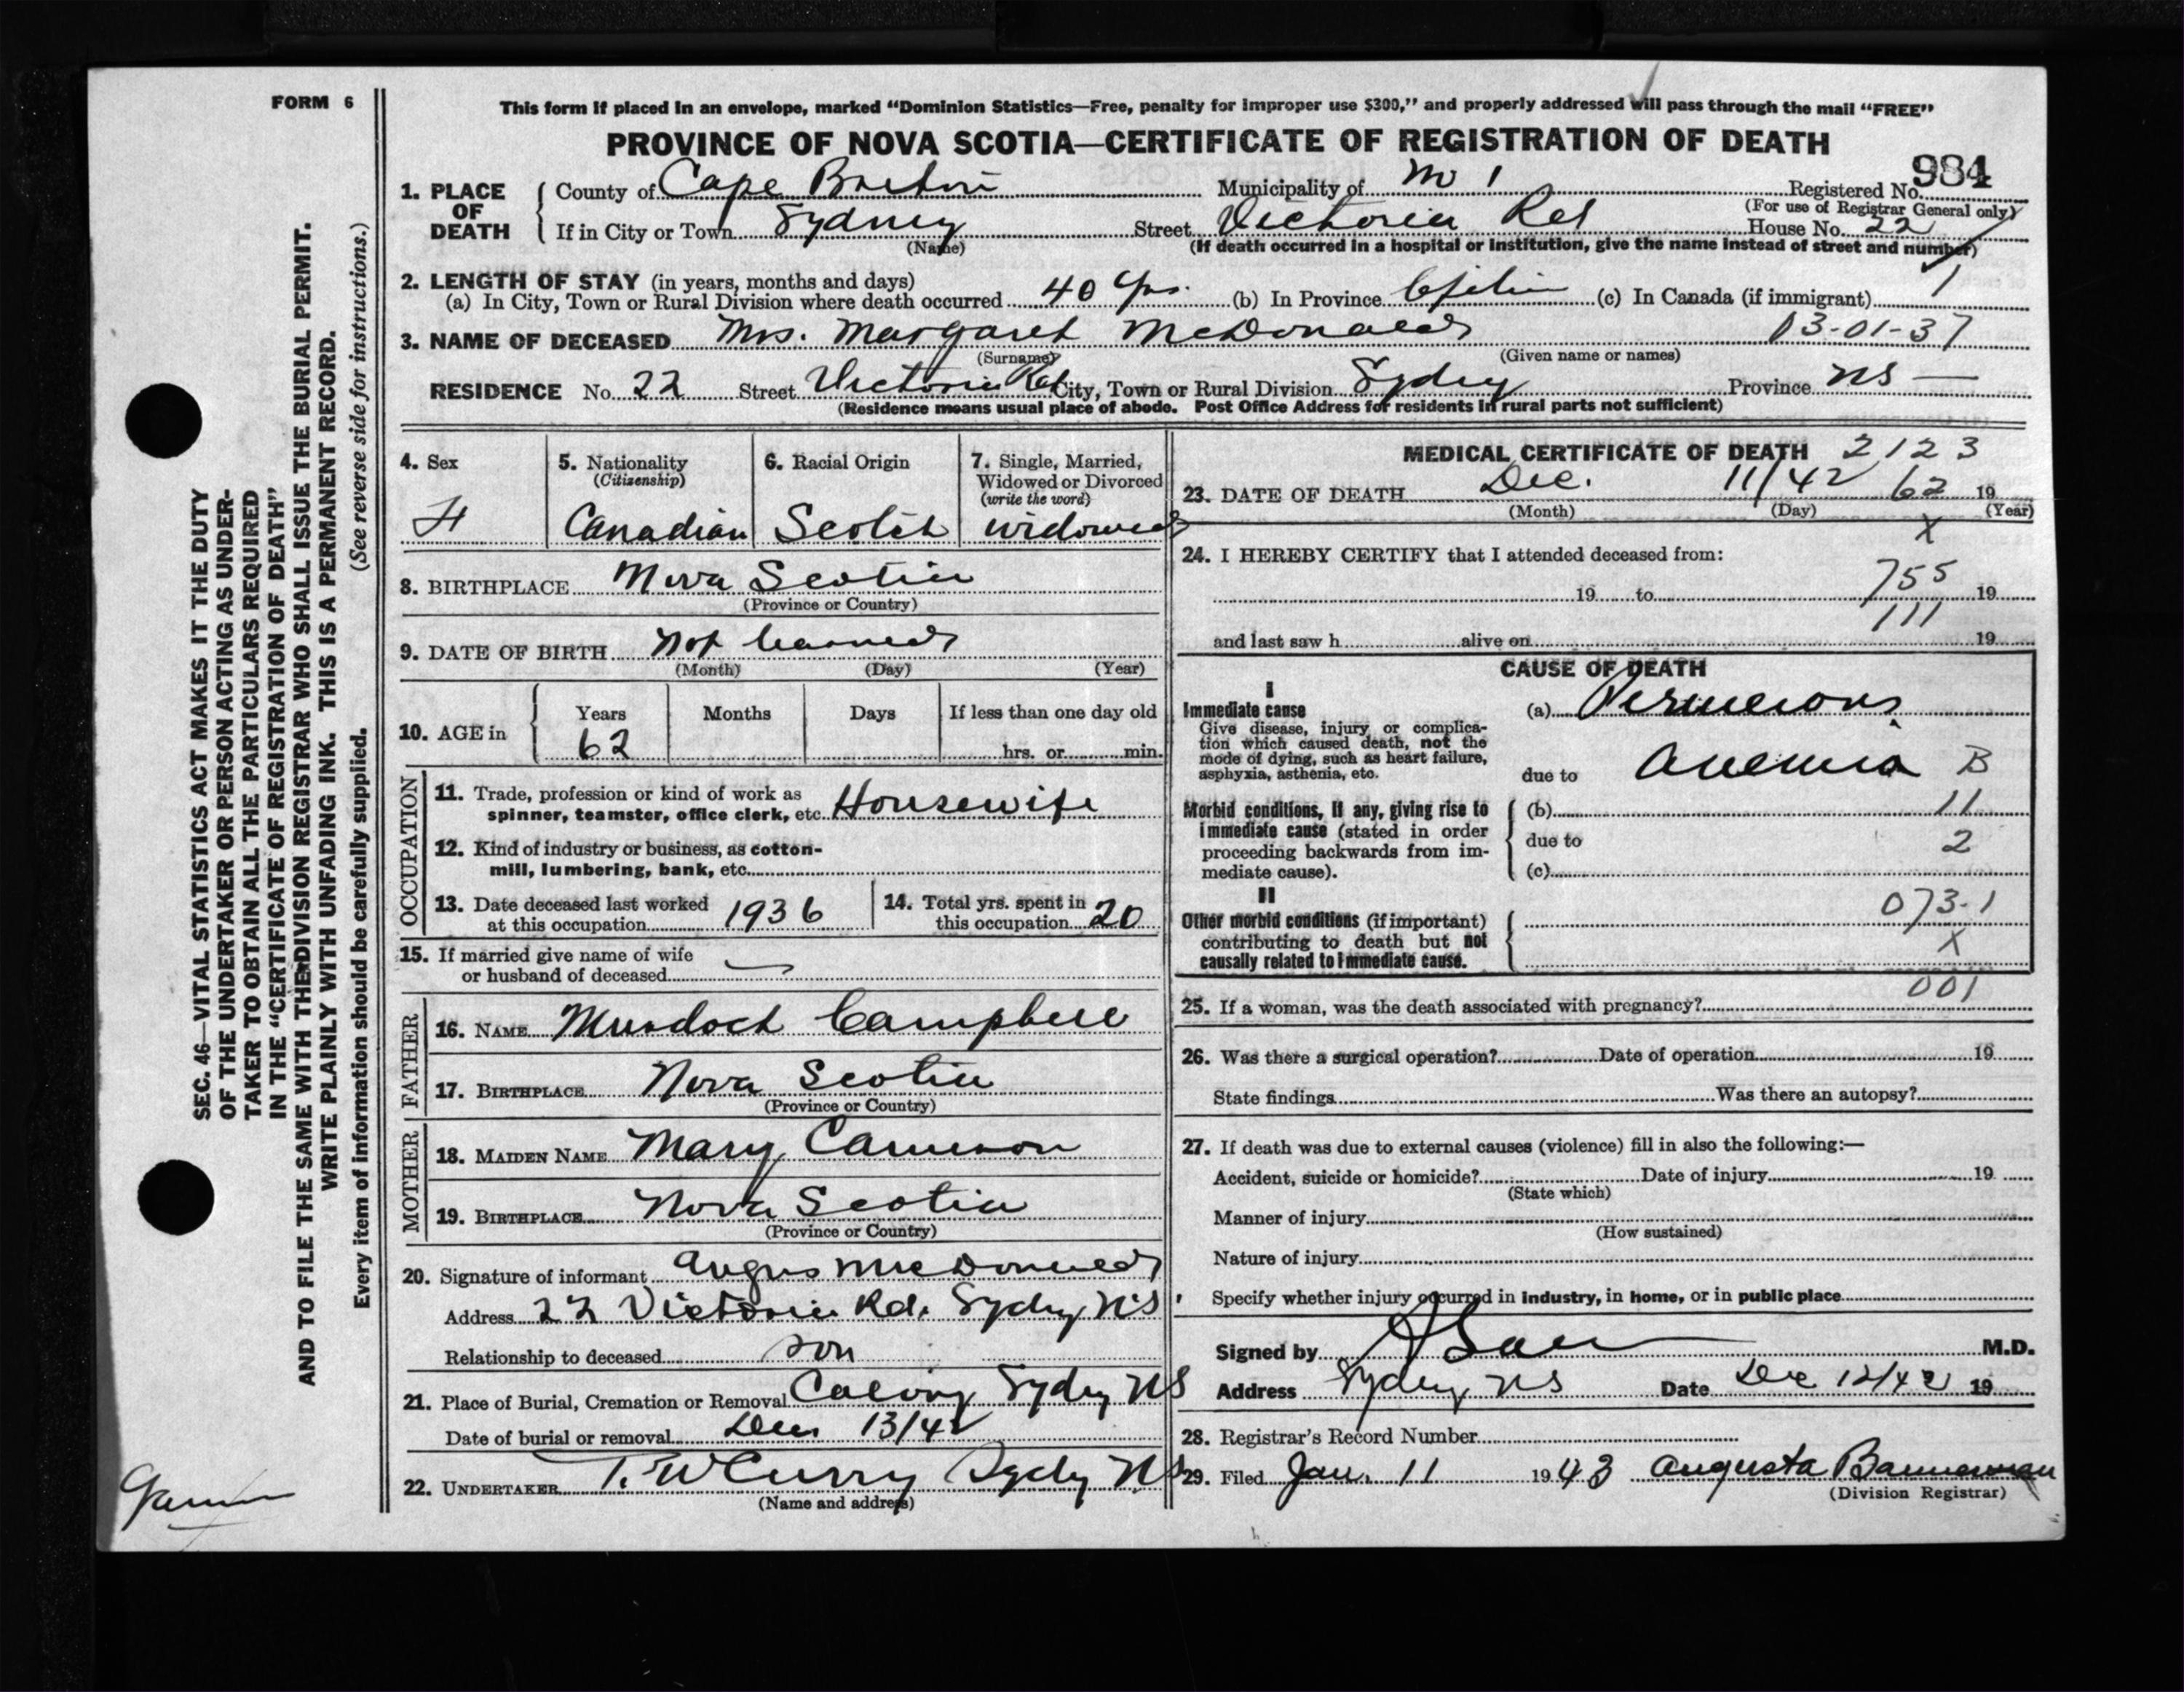 FORM 6
This form if placed in an envelope, marked “Dominion Statistics—Free, penalty for improper use $300,” and properly addressed will pass through the mail “FREE”
PROVINCE OF NOVA SCOTIA—CERTIFICATE OF REGISTRATION OF DEATH
984
1. PLACE OF DEATH
County of Cape Breton Municipality of Registered No.
(For use of Registrar General only)
If in City or Town Sydney Street Victoria Rd House No. 22
(Name) (If death occurred in a hospital or institution, give the name instead of street and number)
2. LENGTH OF STAY (in years, months and days)
(a) In City, Town or Rural Division where death occurred 40 yrs. (b) In Province Life (c) In Canada (if immigrant) 1
3. NAME OF DECEASED Mrs. Margaret McDonald 03-01-37
(Surname) (Given name or names)
RESIDENCE No. 22 Street Victoria Rd City, Town or Rural Division Sydney Province NS —
(Residence means usual place of abode. Post Office Address for residents in rural parts not sufficient)
4. Sex
F
5. Nationality
(Citizenship)
Canadian
6. Racial Origin
Scotch
7. Single, Married,
Widowed or Divorced
(write the word)
widowed
8. BIRTHPLACE Nova Scotia
(Province or Country)
9. DATE OF BIRTH not learned
(Month) (Day) (Year)
10. AGE in
Years Months Days If less than one day old
62 hrs. or min.
OCCUPATION
11. Trade, profession or kind of work as
spinner, teamster, office clerk, etc. Housewife
12. Kind of industry or business, as cotton-
mill, lumbering, bank, etc.
13. Date deceased last worked
at this occupation 1936
14. Total yrs. spent in
this occupation 20
15. If married give name of wife
or husband of deceased —
FATHER
16. NAME Murdoch Campbell
17. BIRTHPLACE Nova Scotia
(Province or Country)
MOTHER
18. MAIDEN NAME Mary Cameron
19. BIRTHPLACE Nova Scotia
(Province or Country)
20. Signature of informant Angus McDonald
Address 22 Victoria Rd. Sydney NS
Relationship to deceased son
21. Place of Burial, Cremation or Removal Sydney NS
Date of burial or removal Dec 13/42
22. UNDERTAKER T. W Curry Sydney NS
(Name and address)
MEDICAL CERTIFICATE OF DEATH 2123
23. DATE OF DEATH Dec. 11/42 62 19
(Month) (Day) (Year)
X
24. I HEREBY CERTIFY that I attended deceased from:
19 to 755 19
111
and last saw h alive on 19
CAUSE OF DEATH
I
Immediate cause
Give disease, injury or complica-
tion which caused death, not the
mode of dying, such as heart failure,
asphyxia, asthenia, etc.
(a) Pernicious
due to Anemia B
Morbid conditions, if any, giving rise to
immediate cause (stated in order
proceeding backwards from im-
mediate cause).
(b) 11
due to 2
(c)
II
Other morbid conditions (if important)
contributing to death but not
causally related to immediate cause.
073-1
X
001
25. If a woman, was the death associated with pregnancy?
26. Was there a surgical operation? Date of operation 19
State findings Was there an autopsy?
27. If death was due to external causes (violence) fill in also the following:—
Accident, suicide or homicide? Date of injury 19
(State which)
Manner of injury
(How sustained)
Nature of injury
Specify whether injury occurred in industry, in home, or in public place
Signed by M.D.
Address Sydney NS Date Dec 12/42 19
28. Registrar's Record Number
29. Filed Jan. 11 1943 Augusta Bannerman
(Division Registrar)
SEC. 46—VITAL STATISTICS ACT MAKES IT THE DUTY
OF THE UNDERTAKER OR PERSON ACTING AS UNDER-
TAKER TO OBTAIN ALL THE PARTICULARS REQUIRED
IN THE “CERTIFICATE OF REGISTRATION OF DEATH”
AND TO FILE THE SAME WITH THE DIVISION REGISTRAR WHO SHALL ISSUE THE BURIAL PERMIT.
WRITE PLAINLY WITH UNFADING INK. THIS IS A PERMANENT RECORD.
Every item of information should be carefully supplied. (See reverse side for instructions.)